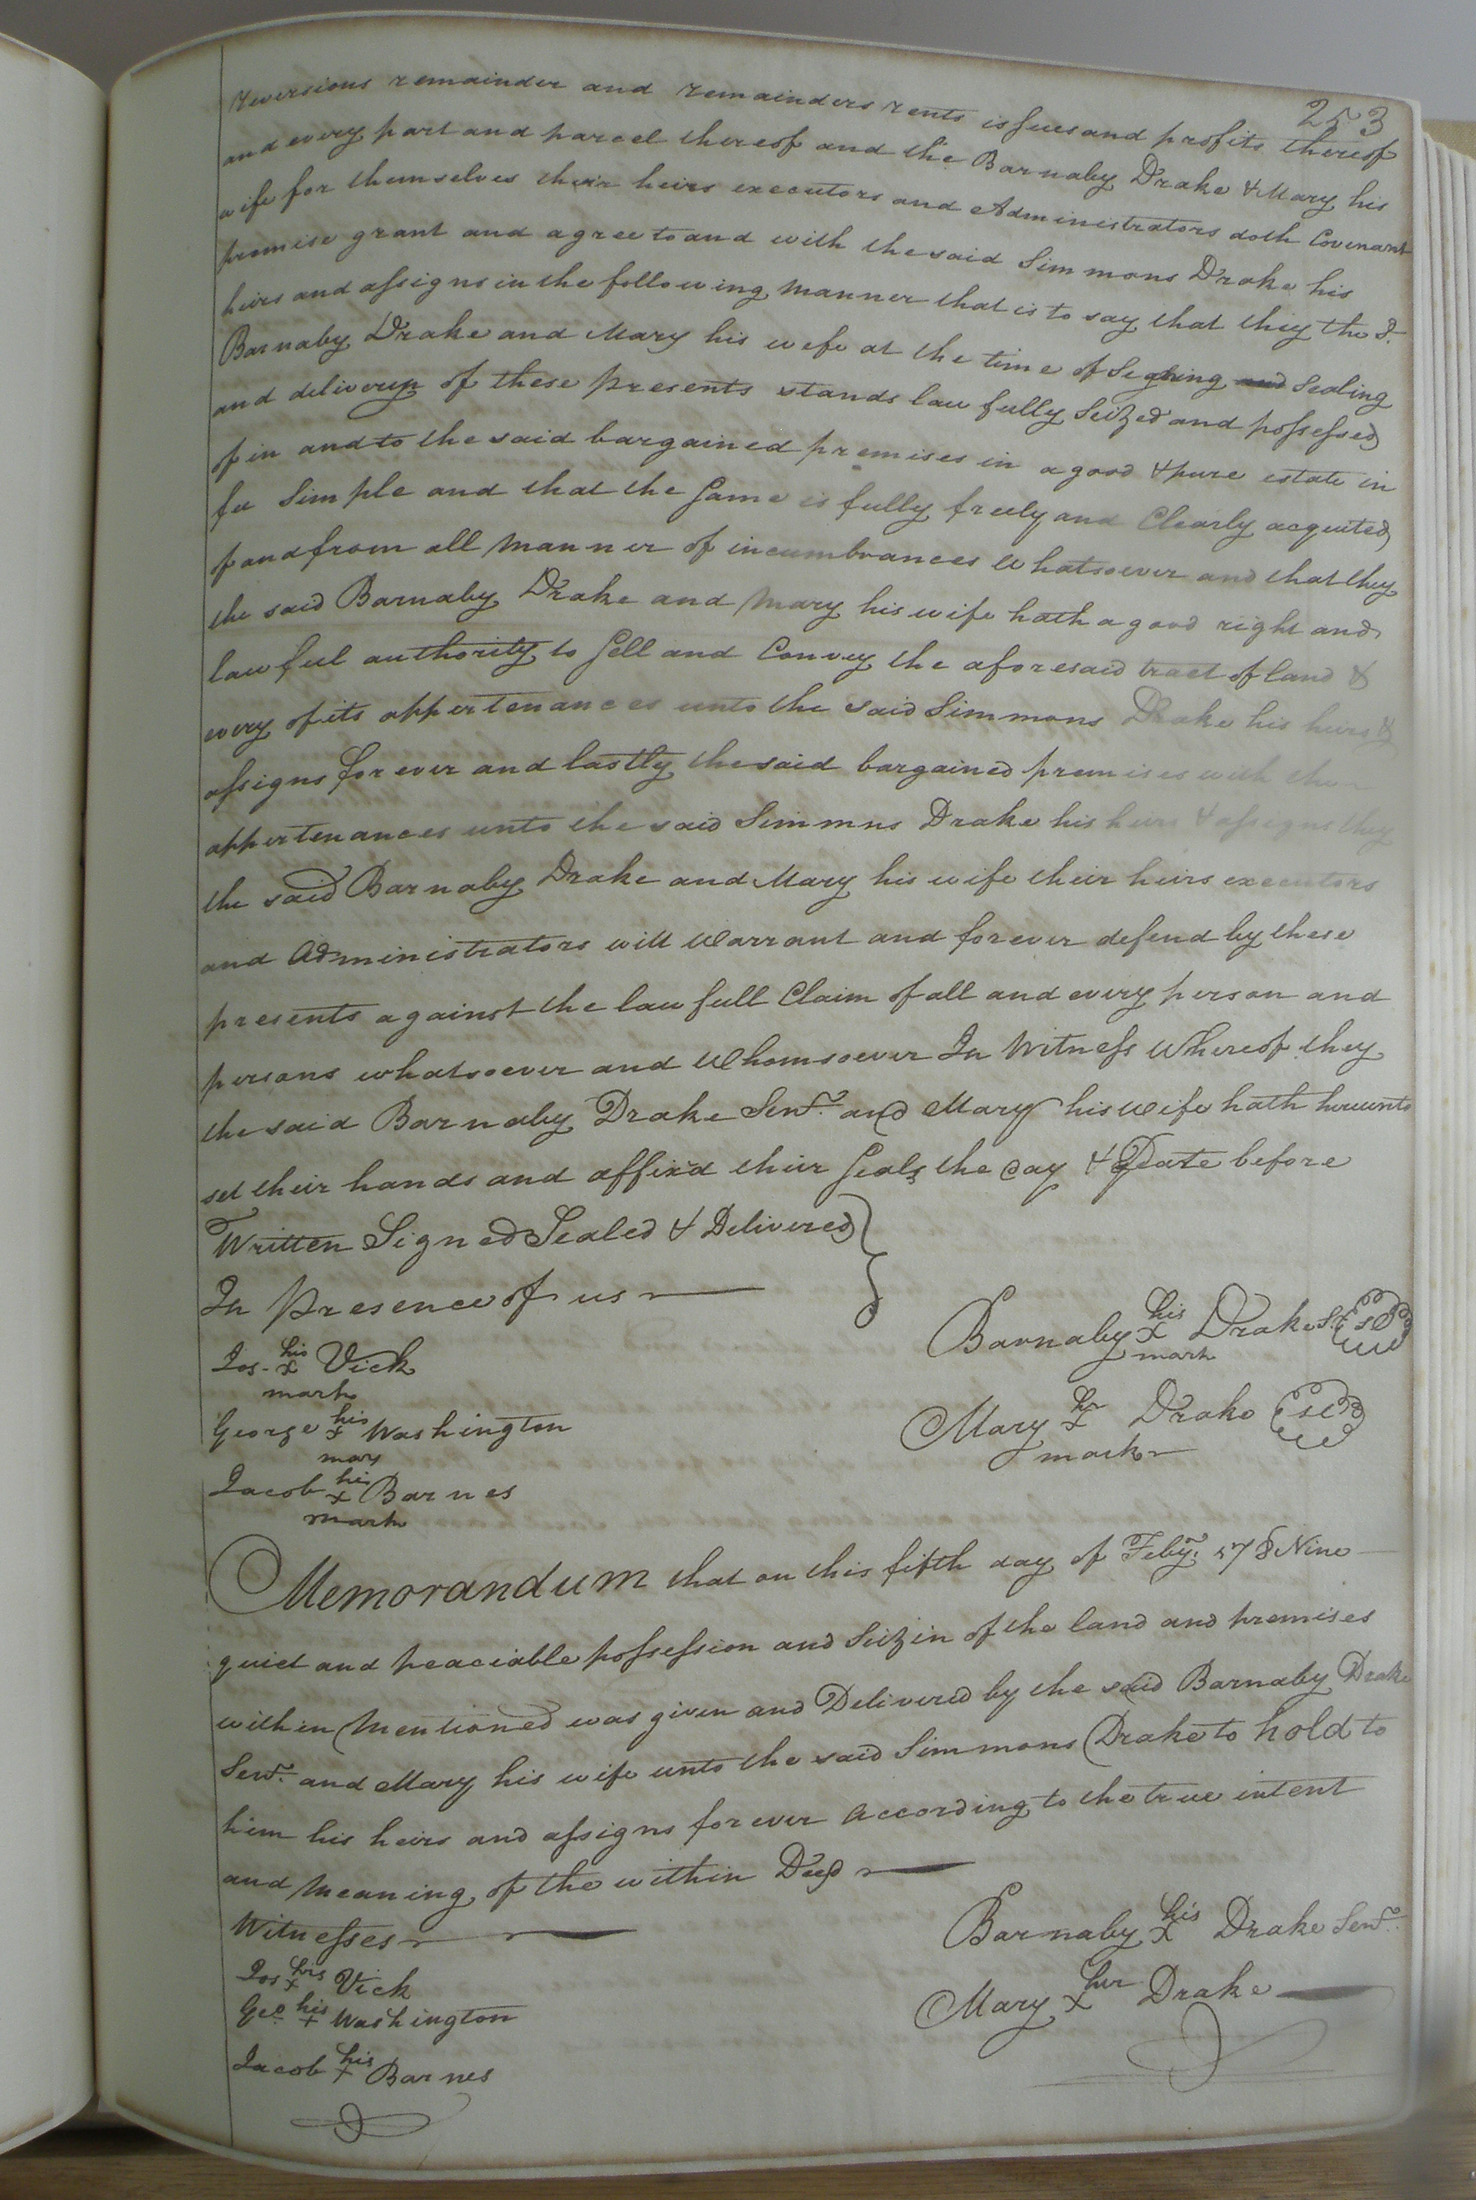 253
reversions remainder and remainders rents issues and profits thereof
and every part and parcel thereof and the Barnaby Drake & Mary his
wife for themselves their heirs executors and Administrators doth Covenant
promise grant and agree to and with the said Simmons Drake his
heirs and assigns in the following manner that is to say that they the Sd.
Barnaby Drake and Mary his wife at the time of Sealing
and delivery of these presents stands lawfully Seized and possessed
of in and to the said bargained premises in a good & pure estate in
fee Simple and that the Same is fully freely and Clearly acquited
of and from all manner of incumbrances whatsoever and that they
the said Barnaby Drake and Mary his wife hath a good right and
lawful authority to Sell and Convey the aforesaid tract of land &
every of its appertenances unto the said Simmons Drake his heirs &
assigns forever and lastly the said bargained premises with the
appertenances unto the said Simmns Drake his heirs & assigns they
the said Barnaby Drake and Mary his wife their heirs executors
and Administrators will Warrant and forever defend by these
presents against the lawfull Claim of all and every person and
persons whatsoever and Whomsoever In Witness Whereof they
the said Barnaby Drake Senr. and Mary his wife hath hereunto
set their hands and affix'd their Seals the day & Date before
Written Signed Sealed & Delivered
In Presence of us
Barnaby his x mark Drake Sr.
Jos. his x mark Vick
Mary her x mark Drake
George his x mark Washington
Jacob his x mark Barnes
Memorandum that on this fifth day of Feby. Nine
quiet and peaciable possession and Seizin of the land and premises
within Mentioned was given and Delivered by the said Barnaby Drake
Senr. and Mary his wife unto the said Simmons Drake to hold to
him his heirs and assigns forever according to the true intent
and Meaning of the within Deed
Witnesses
Barnaby his x Drake Senr.
Jos his x Vick
Mary her x Drake
Geo his x Washington
Jacob his x Barnes